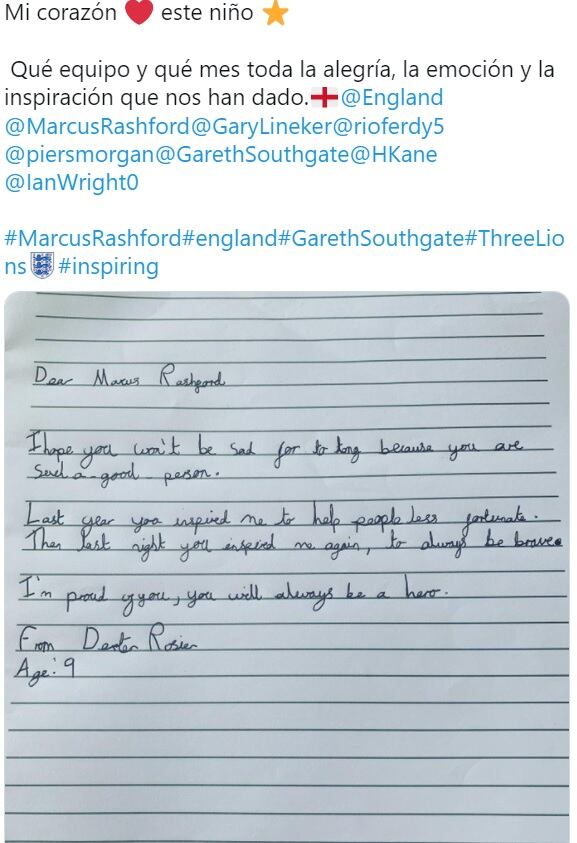 Mi corazón ❤️ este niño ⭐
Qué equipo y qué mes toda la alegría, la emoción y la
inspiración que nos han dado.🏴󠁧󠁢󠁥󠁮󠁧󠁿@England
@MarcusRashford@GaryLineker@rioferdy5
@piersmorgan@GarethSouthgate@HKane
@IanWright0
#MarcusRashford#england#GarethSouthgate#ThreeLio
ns #inspiring
Dear Marcus Rashford
I hope you won't be sad for to long because you are
such a good person.
Last year you inspired me to help people less fortunate.
Then last night you inspired me again, to always be brave.
I'm proud of you, you will always be a hero.
From Dexter Rosier
Age: 9